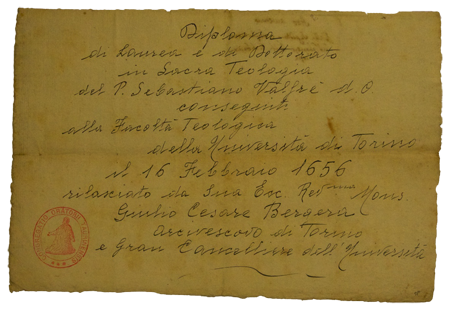 Diploma
di Laurea e di Dottorato
in Sacra Teologia
del P. Sebastiano Valfrè d. O
conseguiti
alla Facoltà Teologica
della Università di Torino
il 16 Febbraio 1656
rilasciato da Sua Ecc Rev^ma Mons.
Giulio Cesare Bergera
Arcivescovo di Torino
e Gran Cancelliere dell'Università